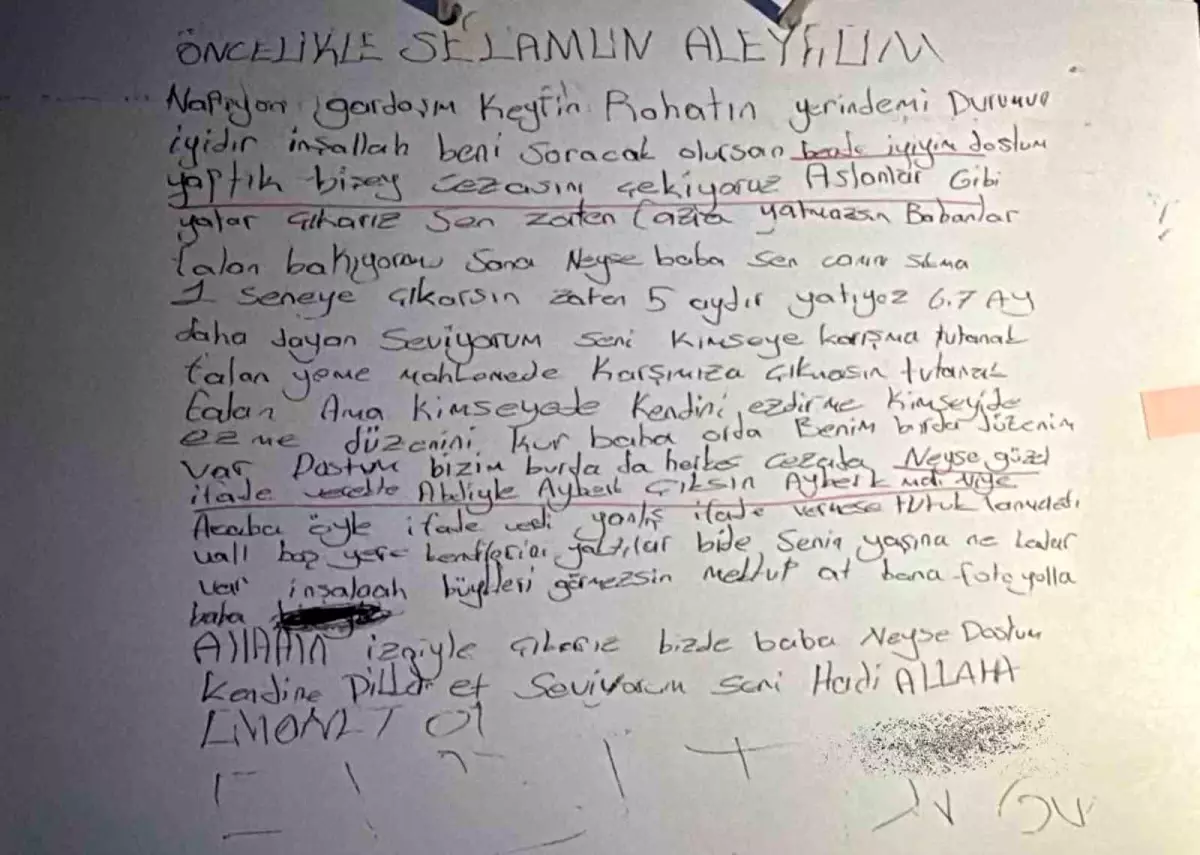 ÖNCELİKLE SELAMUN ALEYKUM
Napıyon gardaşım Keyfin Rahatın yerindemi Durumun
iyidir inşallah beni soracak olursan bende iyiyim dostum
yaptık bişey cezasını çekiyoruz Aslanlar Gibi
yatar çıkarız Sen zaten fazla yatmazsın Babanlar
falan bakıyorum Sana Neyse baba sen canın sıkma
1 seneye çıkarsın zaten 5 aydır yatıyoz 6.7 AY
daha dayan Seviyorum seni Kimseye karışma tutanak
falan yeme mahkemede Karşımıza çıkmasın tutanak
falan Ama kimseyede Kendini ezdirme Kimseyide
ezme düzenini kur baba orda Benim burda düzenim
var Dostum bizim burda da herkes cezada Neyse güzel
ifade verelle Abiliyle Ayberk Çıksın Ayberk
Acaba öyle ifade verdi yanlış ifade vermese tutuklanmazdı
vall boş yere kendilerini yaktılar bide Senin yaşına ne kadar
var inşalaah büyükleri görmezsin mektup at bana foto yolla
baba
AllAHIN izniyle çıkarız bizde baba Neyse Dostum
Kendine Dikkat et Seviyorum seni Hadi ALLAHA
EMANET Ol